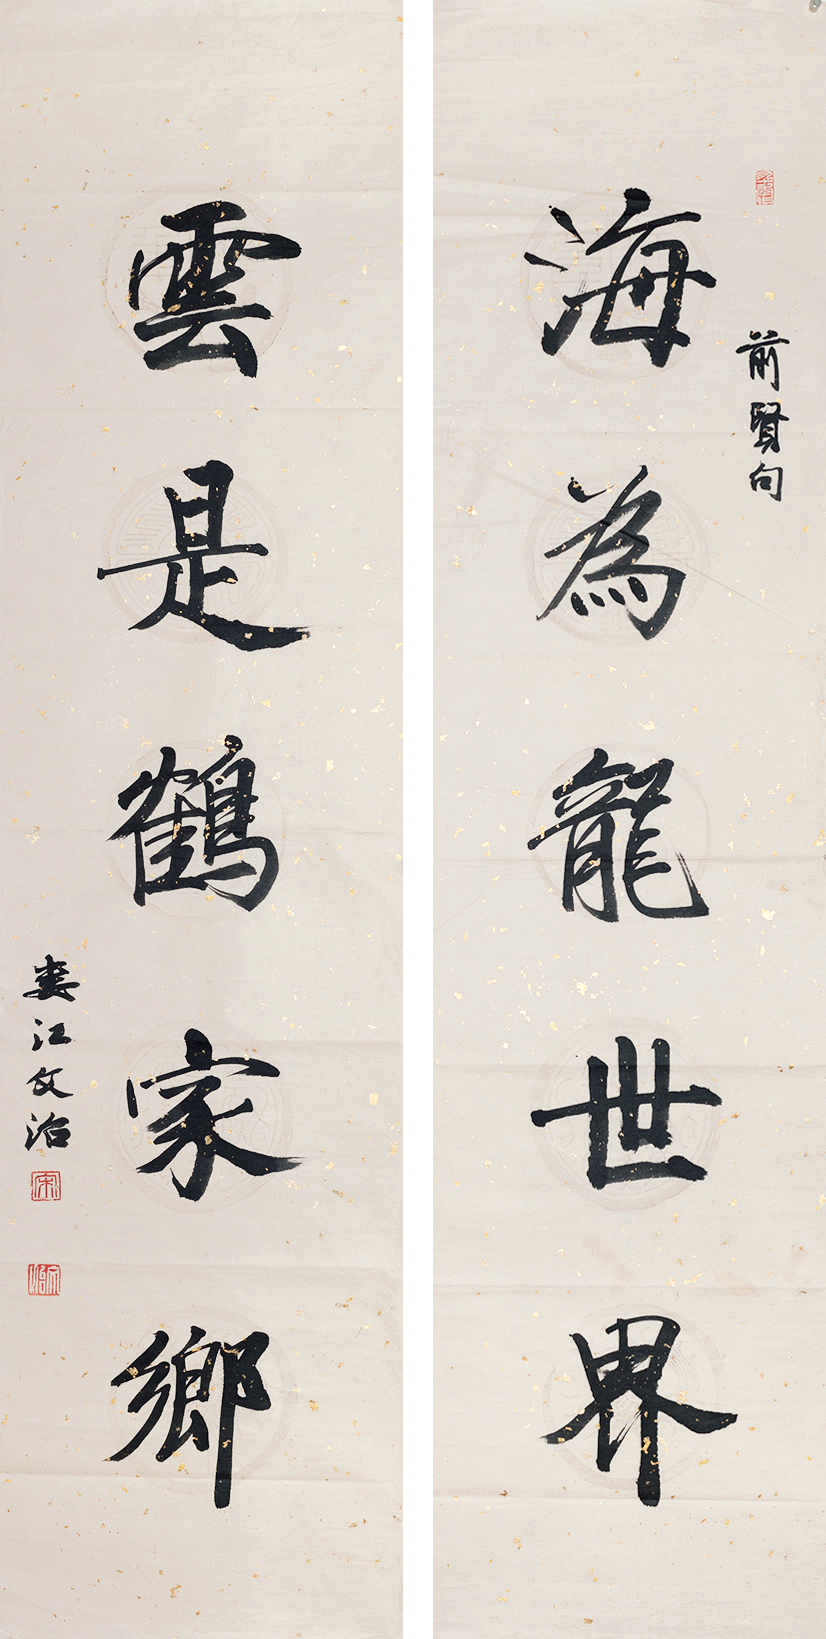 前賢句
海為龍世界
雲是鶴家鄉
婁江文治
宋
文治